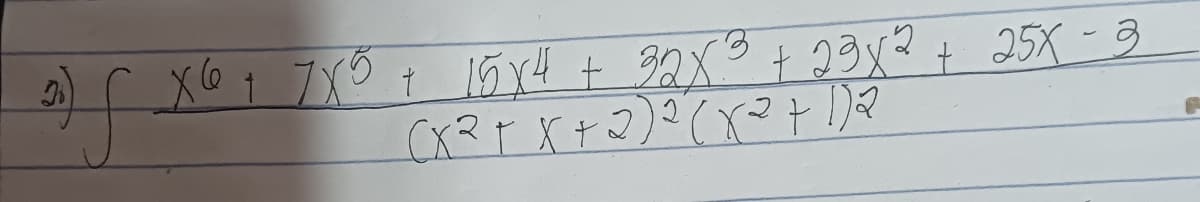 2.) ∫ x6 + 7x5 + 15x4 + 32x3 + 23x2 + 25x - 3
(x2 + x + 2)2 (x2 + 1)2